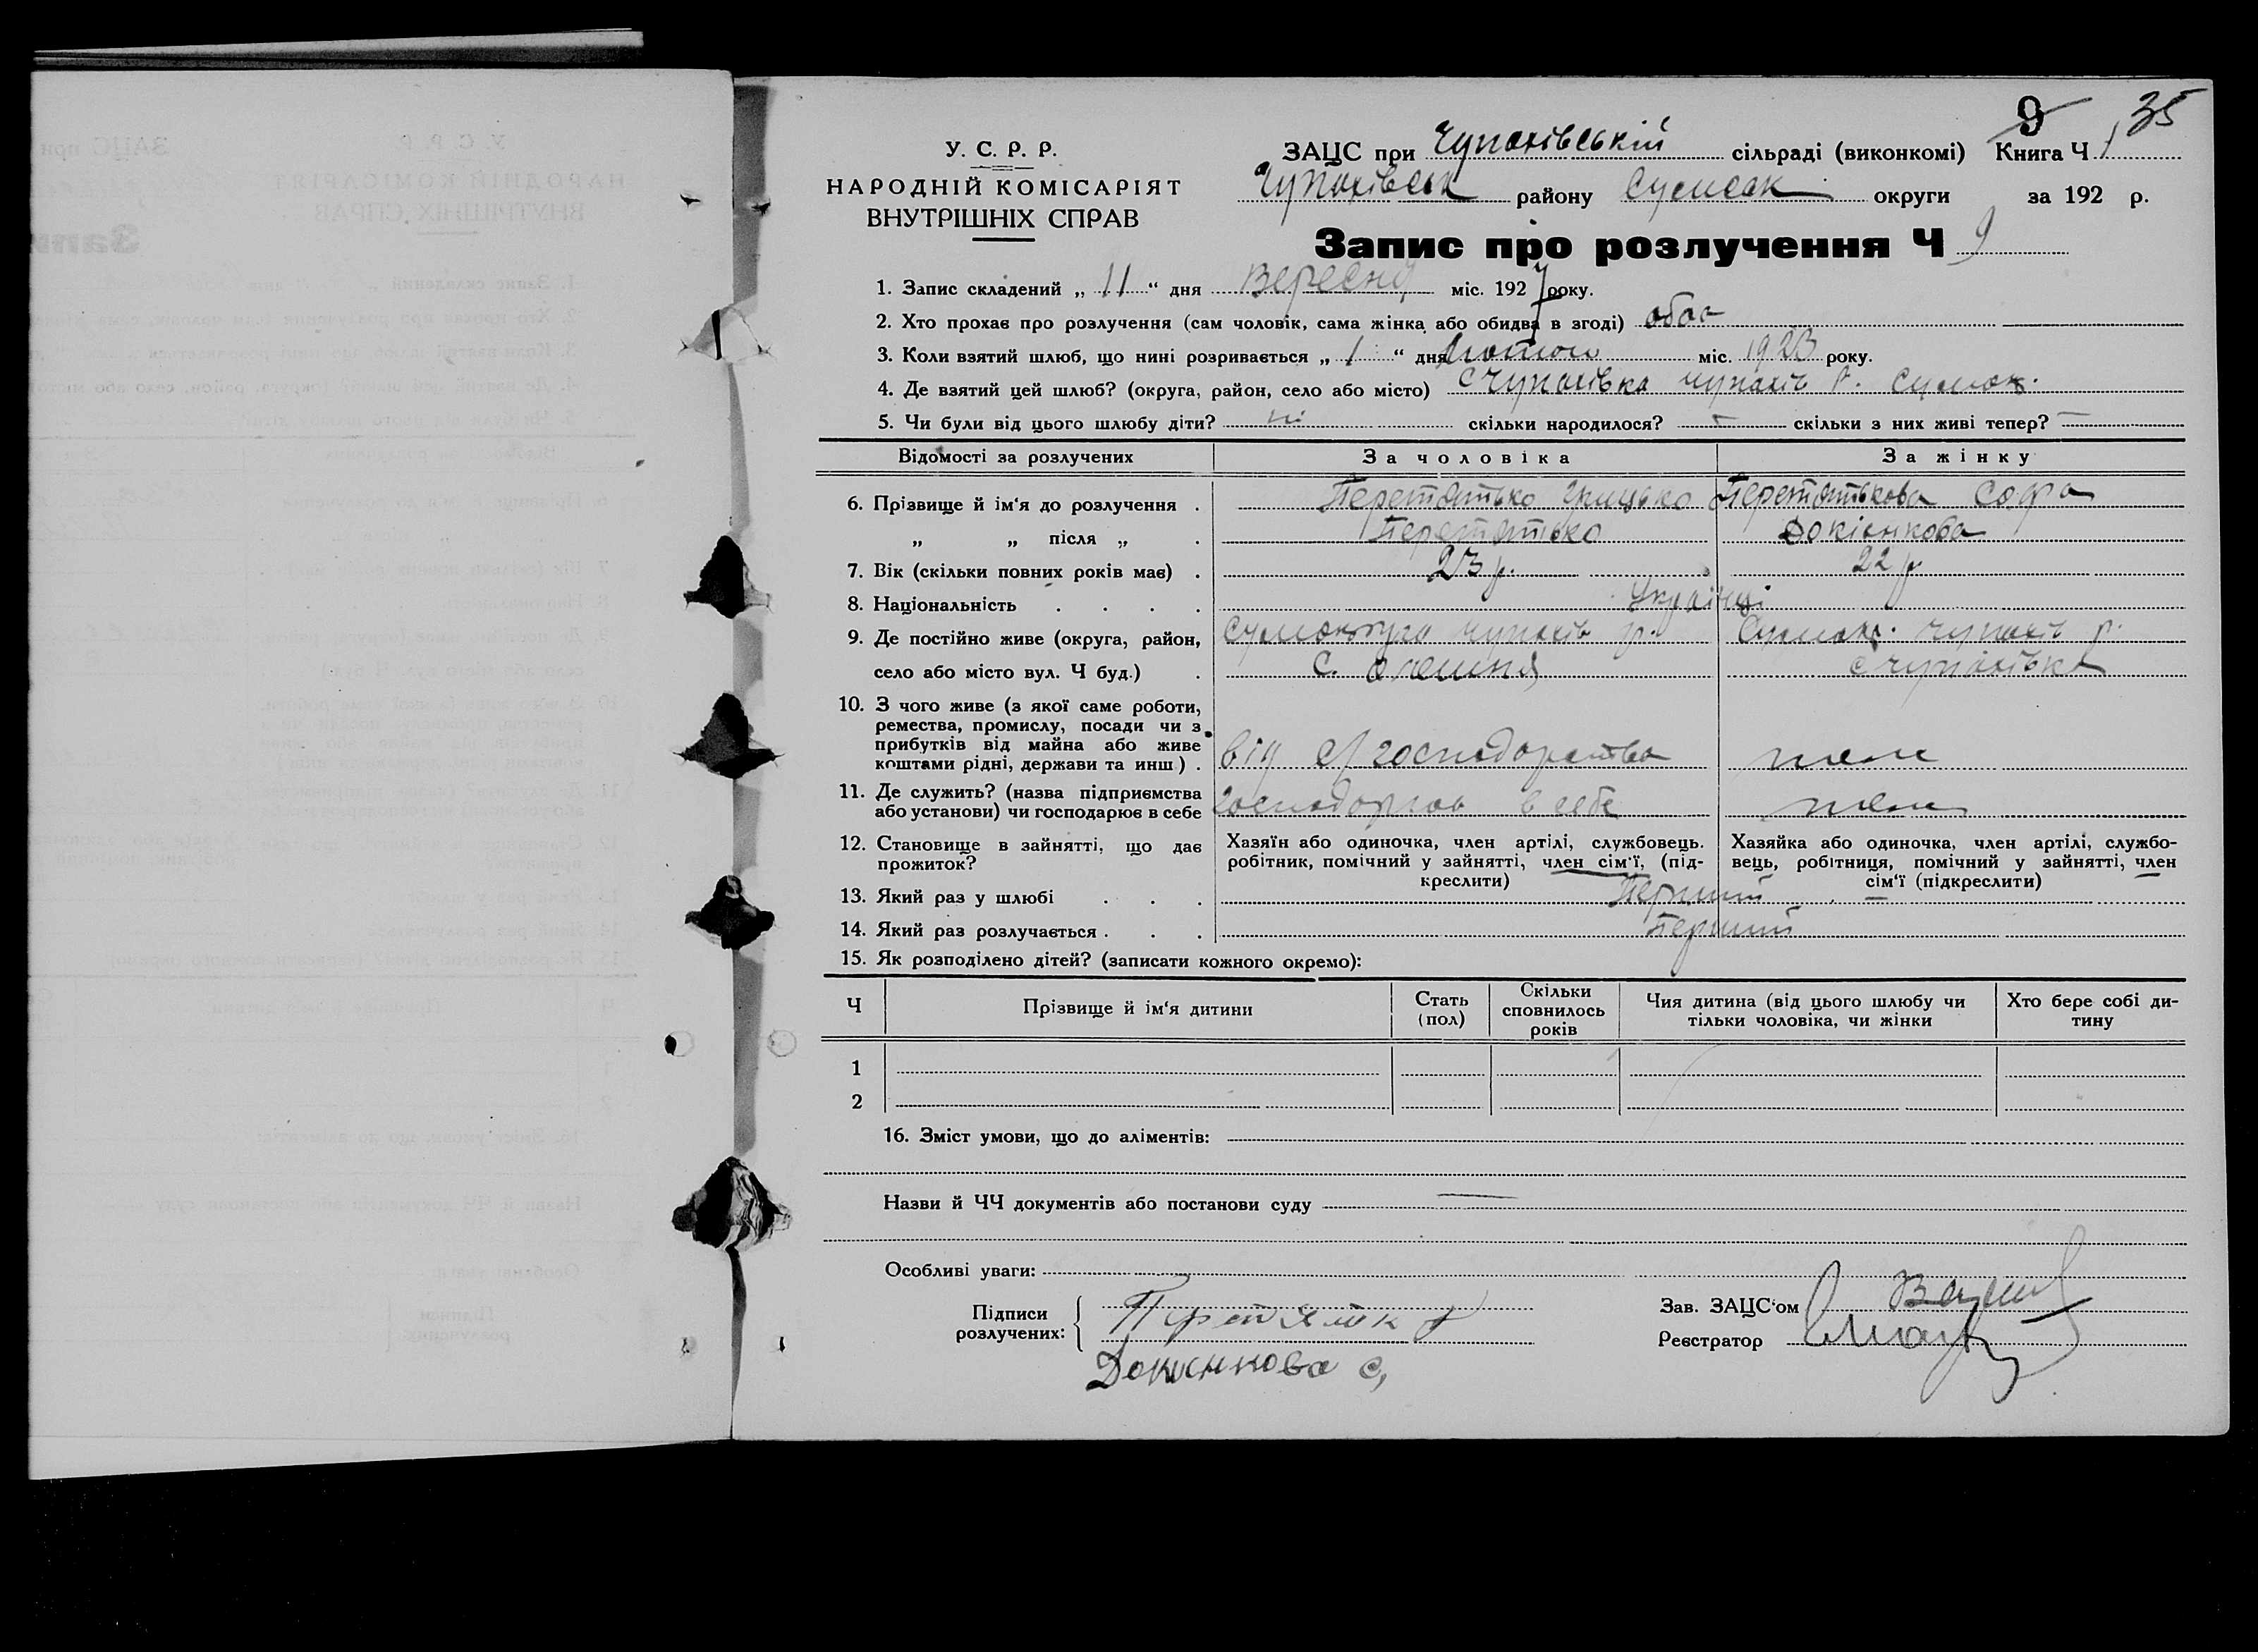 9 35
У. С. Р. Р.
НАРОДНІЙ КОМІСАРІЯТ
ВНУТРІШНІХ СПРАВ
ЗАЦС при Чупахівській сільраді (виконкомі) Книга Ч 1
Чупахівськ району Сумськ округи за 192 р.
Запис про розлучення Ч 9
1. Запис складений „ 11 “ дня Вересня міс. 1927 року.
2. Хто прохає про розлучення (сам чоловік, сама жінка або обидва в згоді) обоє
3. Коли взятий шлюб, що нині розривається „ 1 “ дня Лютого міс. 1923 року.
4. Де взятий цей шлюб? (округа, район, село або місто) с Чупахівка Чупахів р. Сумок.
5. Чи були від цього шлюбу діти? ні скільки народилося? — скільки з них живі тепер? —
Відомості за розлучених За чоловіка За жінку
6. Прізвище й ім‘я до розлучення . Перетятько Грицько Перетятькова Софа
„ „ після „ . Перетятько Докієнкова
7. Вік (скільки повних років має) . 23 р. 22 р.
8. Національність . . . . Українці
9. Де постійно живе (округа, район, Сумокруга Чупахів р. Сумок. Чупахів р.
село або місто вул. Ч буд.) . с. Олешня с Чупахівка
10. З чого живе (з якої саме роботи,
ремества, промислу, посади чи з
прибутків від майна або живе
коштами рідні, держави та инш) . від с/господарства теж
11. Де служить? (назва підприємства
або установи) чи господарює в себе господарює в себе теж
12. Становище в зайнятті, що дає
прожиток?
Хазяїн або одиночка, член артілі, службовець.
робітник, помічний у зайнятті, член сім‘ї, (під-
креслити)
Хазяйка або одиночка, член артілі, службо-
вець, робітниця, помічний у зайнятті, член
сім‘ї (підкреслити)
13. Який раз у шлюбі . . . Перший
14. Який раз розлучається . . . Перший
15. Як розподілено дітей? (записати кожного окремо):
Ч Прізвище й ім‘я дитини Стать (пол) Скільки сповнилось років Чия дитина (від цього шлюбу чи тільки чоловіка, чи жінки Хто бере собі ди-тину
1
2
16. Зміст умови, що до аліментів:
Назви й ЧЧ документів або постанови суду —
Особливі уваги:
Підписи
розлучених:
Перетятько
Докиєнкова С,
Зав. ЗАЦС‘ом
Реєстратор